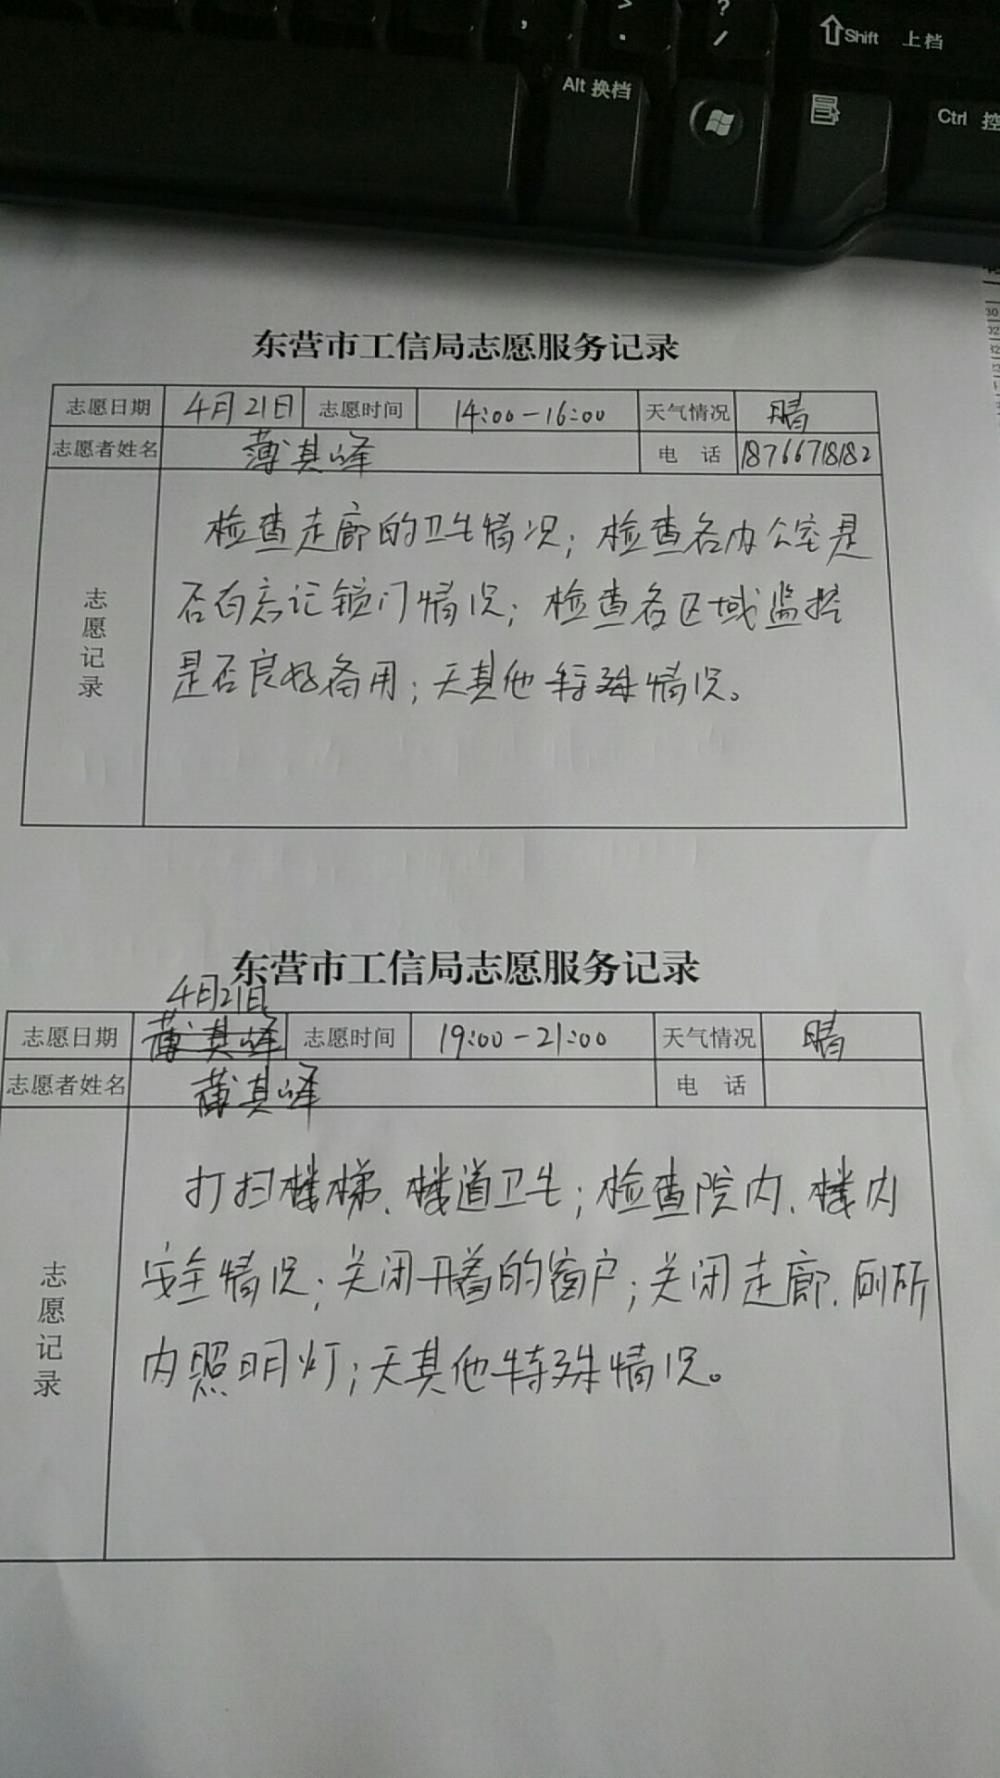 > ? Shift 上档
, . /
Alt 换档 Ctrl 控
东营市工信局志愿服务记录
志愿日期 4月21日 志愿时间 14:00-16:00 天气情况 晴
志愿者姓名 薄其峰 电 话 18766718182
志愿记录
检查走廊的卫生情况；检查各办公室是
否有忘记锁门情况；检查各区域监控
是否良好备用；无其他特殊情况。
东营市工信局志愿服务记录
4月21日
志愿日期 薄其峰 志愿时间 19:00-21:00 天气情况 晴
志愿者姓名 薄其峰 电 话
志愿记录
打扫楼梯、楼道卫生；检查院内、楼内
安全情况；关闭开着的窗户；关闭走廊、厕所
内照明灯；无其他特殊情况。